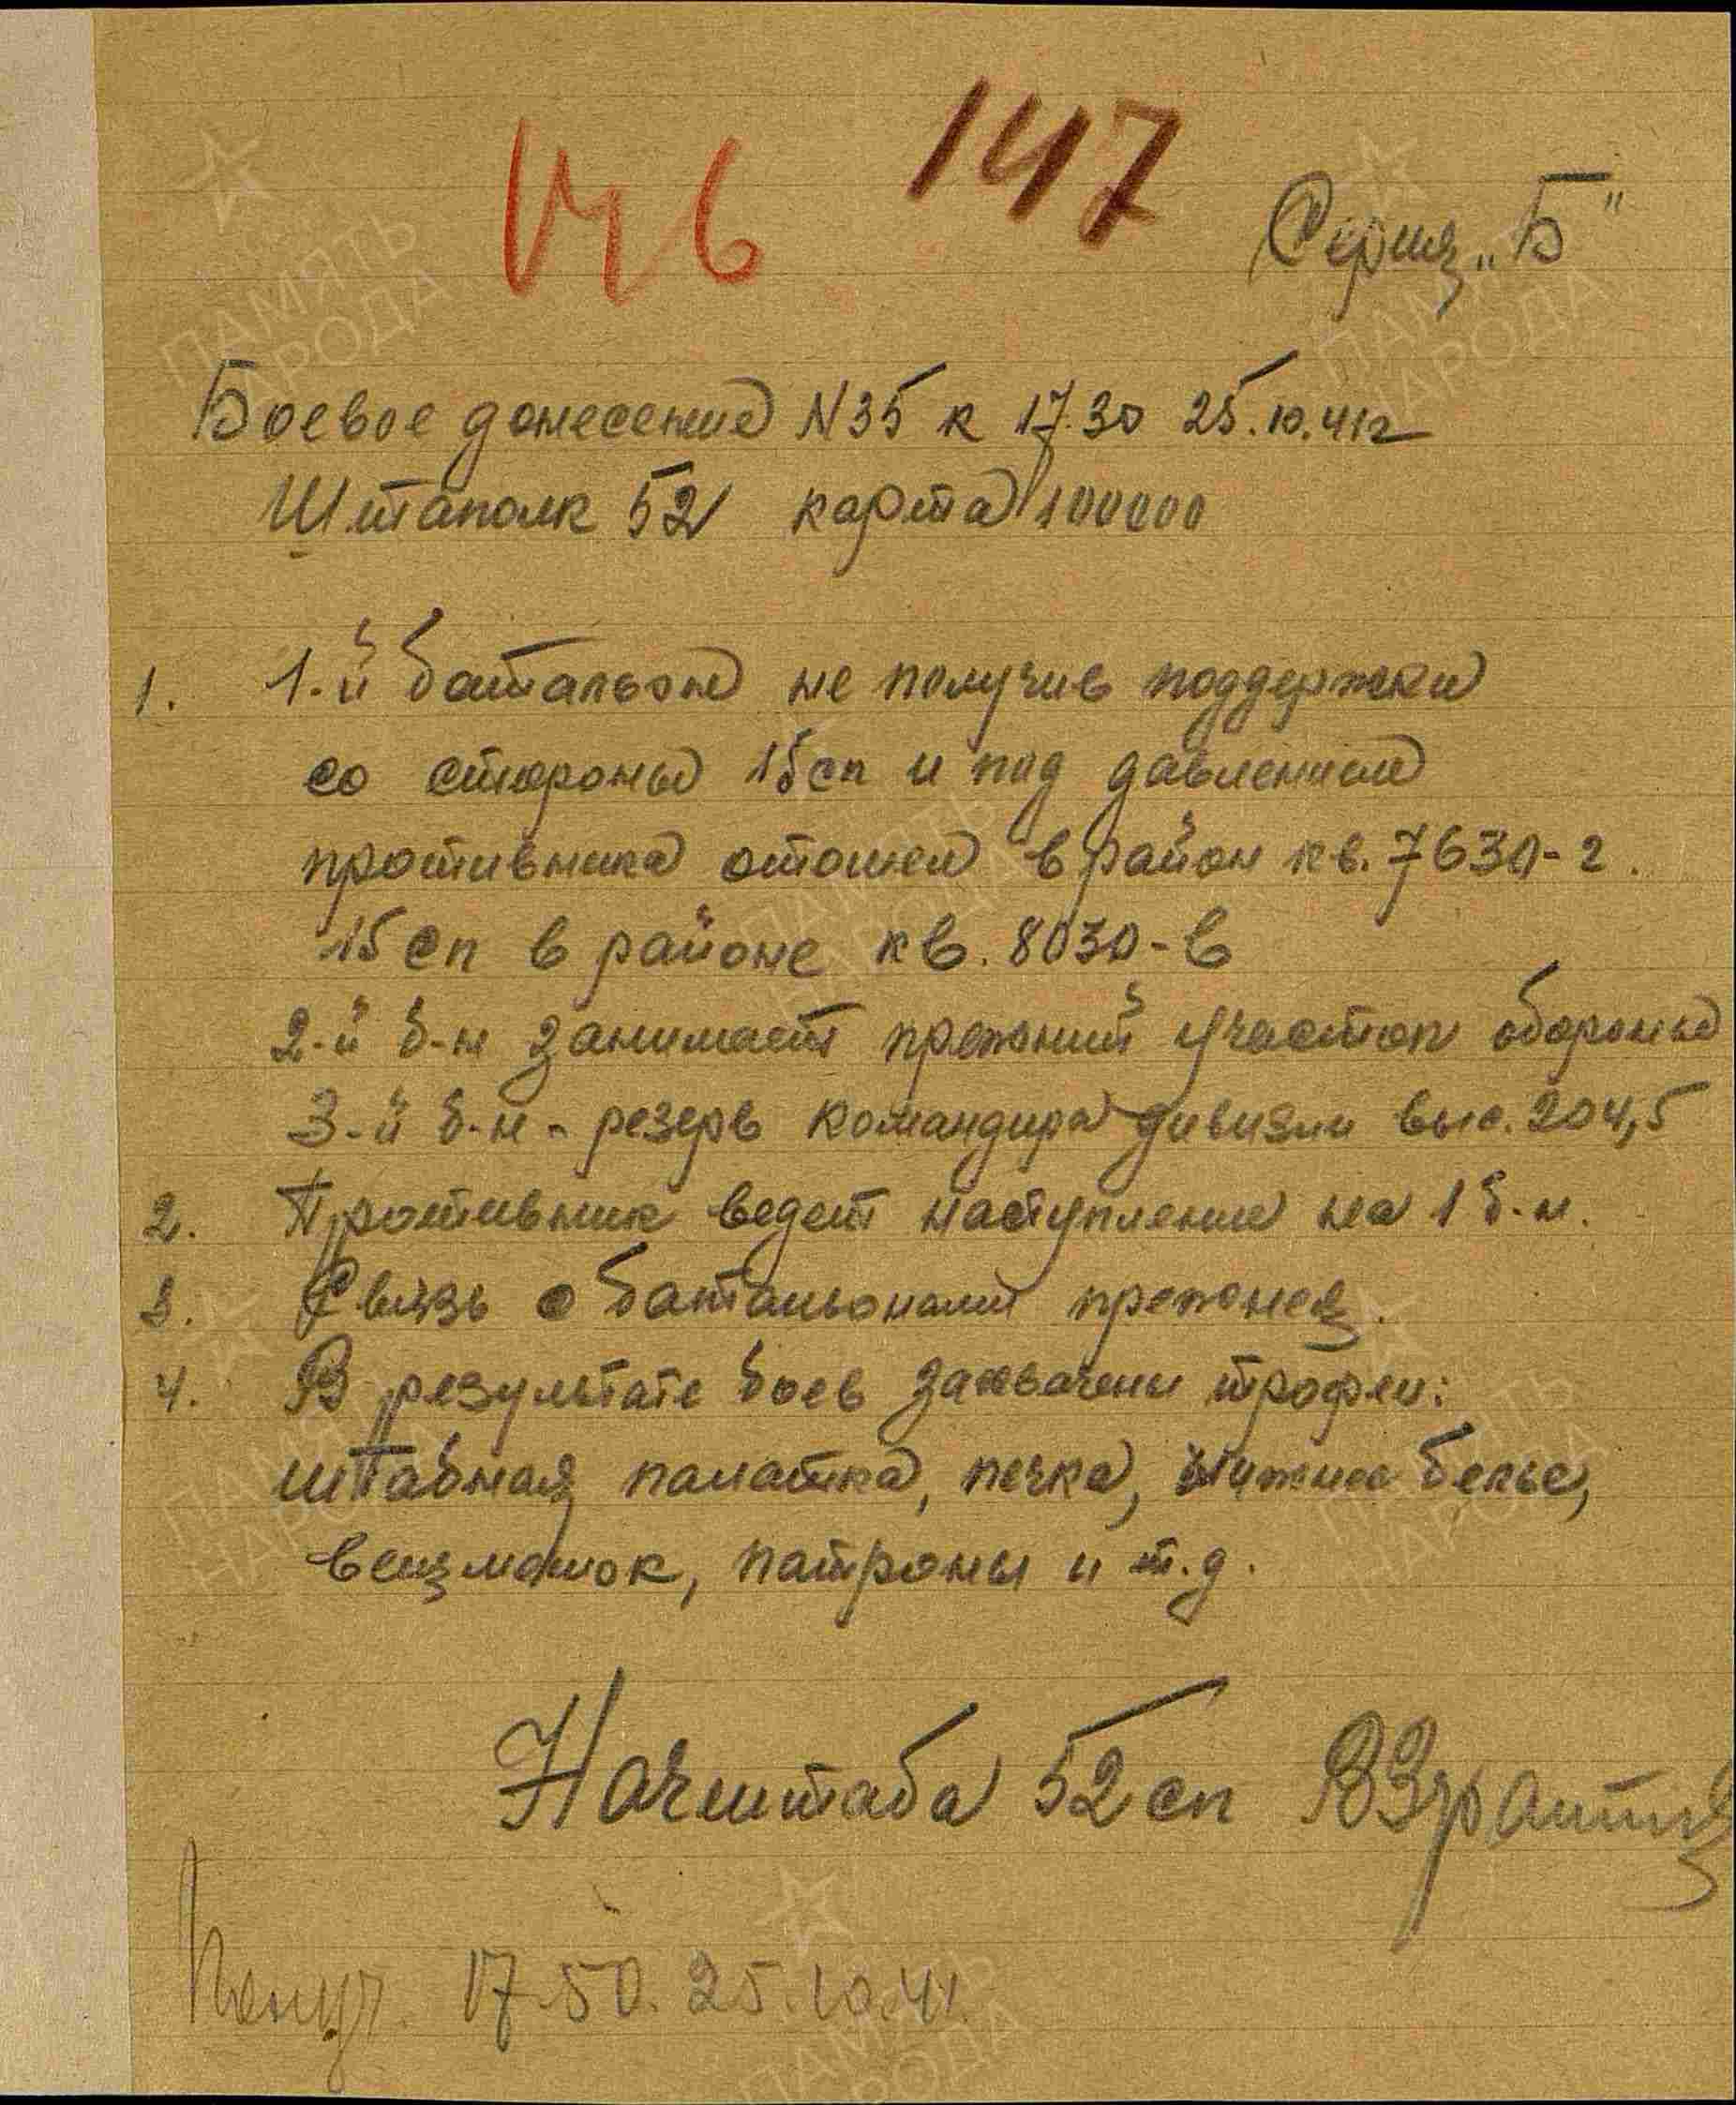 146 147
Серия „Б"
Боевое донесение N35 к 17.30 25.10.41г
Штаполк 52 карта 100000
1. 1-й батальон не получив поддержки
со стороны 15сп и под давлением
противника отошел в район кв. 7630-г.
15 сп в районе кв. 8030-в
2-й б-н занимает прежний участок обороны
3-й б-н - резерв командира дивизии выс. 204,5
2. Противник ведет наступление на 1 б-н.
3. Связь с батальонами прежняя.
4. В результате боев захвачены трофеи:
штабная палатка, печка, нижнее белье,
вещмешок, патроны и т.д.
Начштаба 52 сп
Получ. 17.50. 25.10.41.
ПАМЯТЬ
НАРОДА
ПАМЯТЬ
НАРОДА
ПАМЯТЬ
НАРОДА
ПАМЯТЬ
НАРОДА
ПАМЯТЬ
НАРОДА
ПАМЯТЬ
НАРОДА